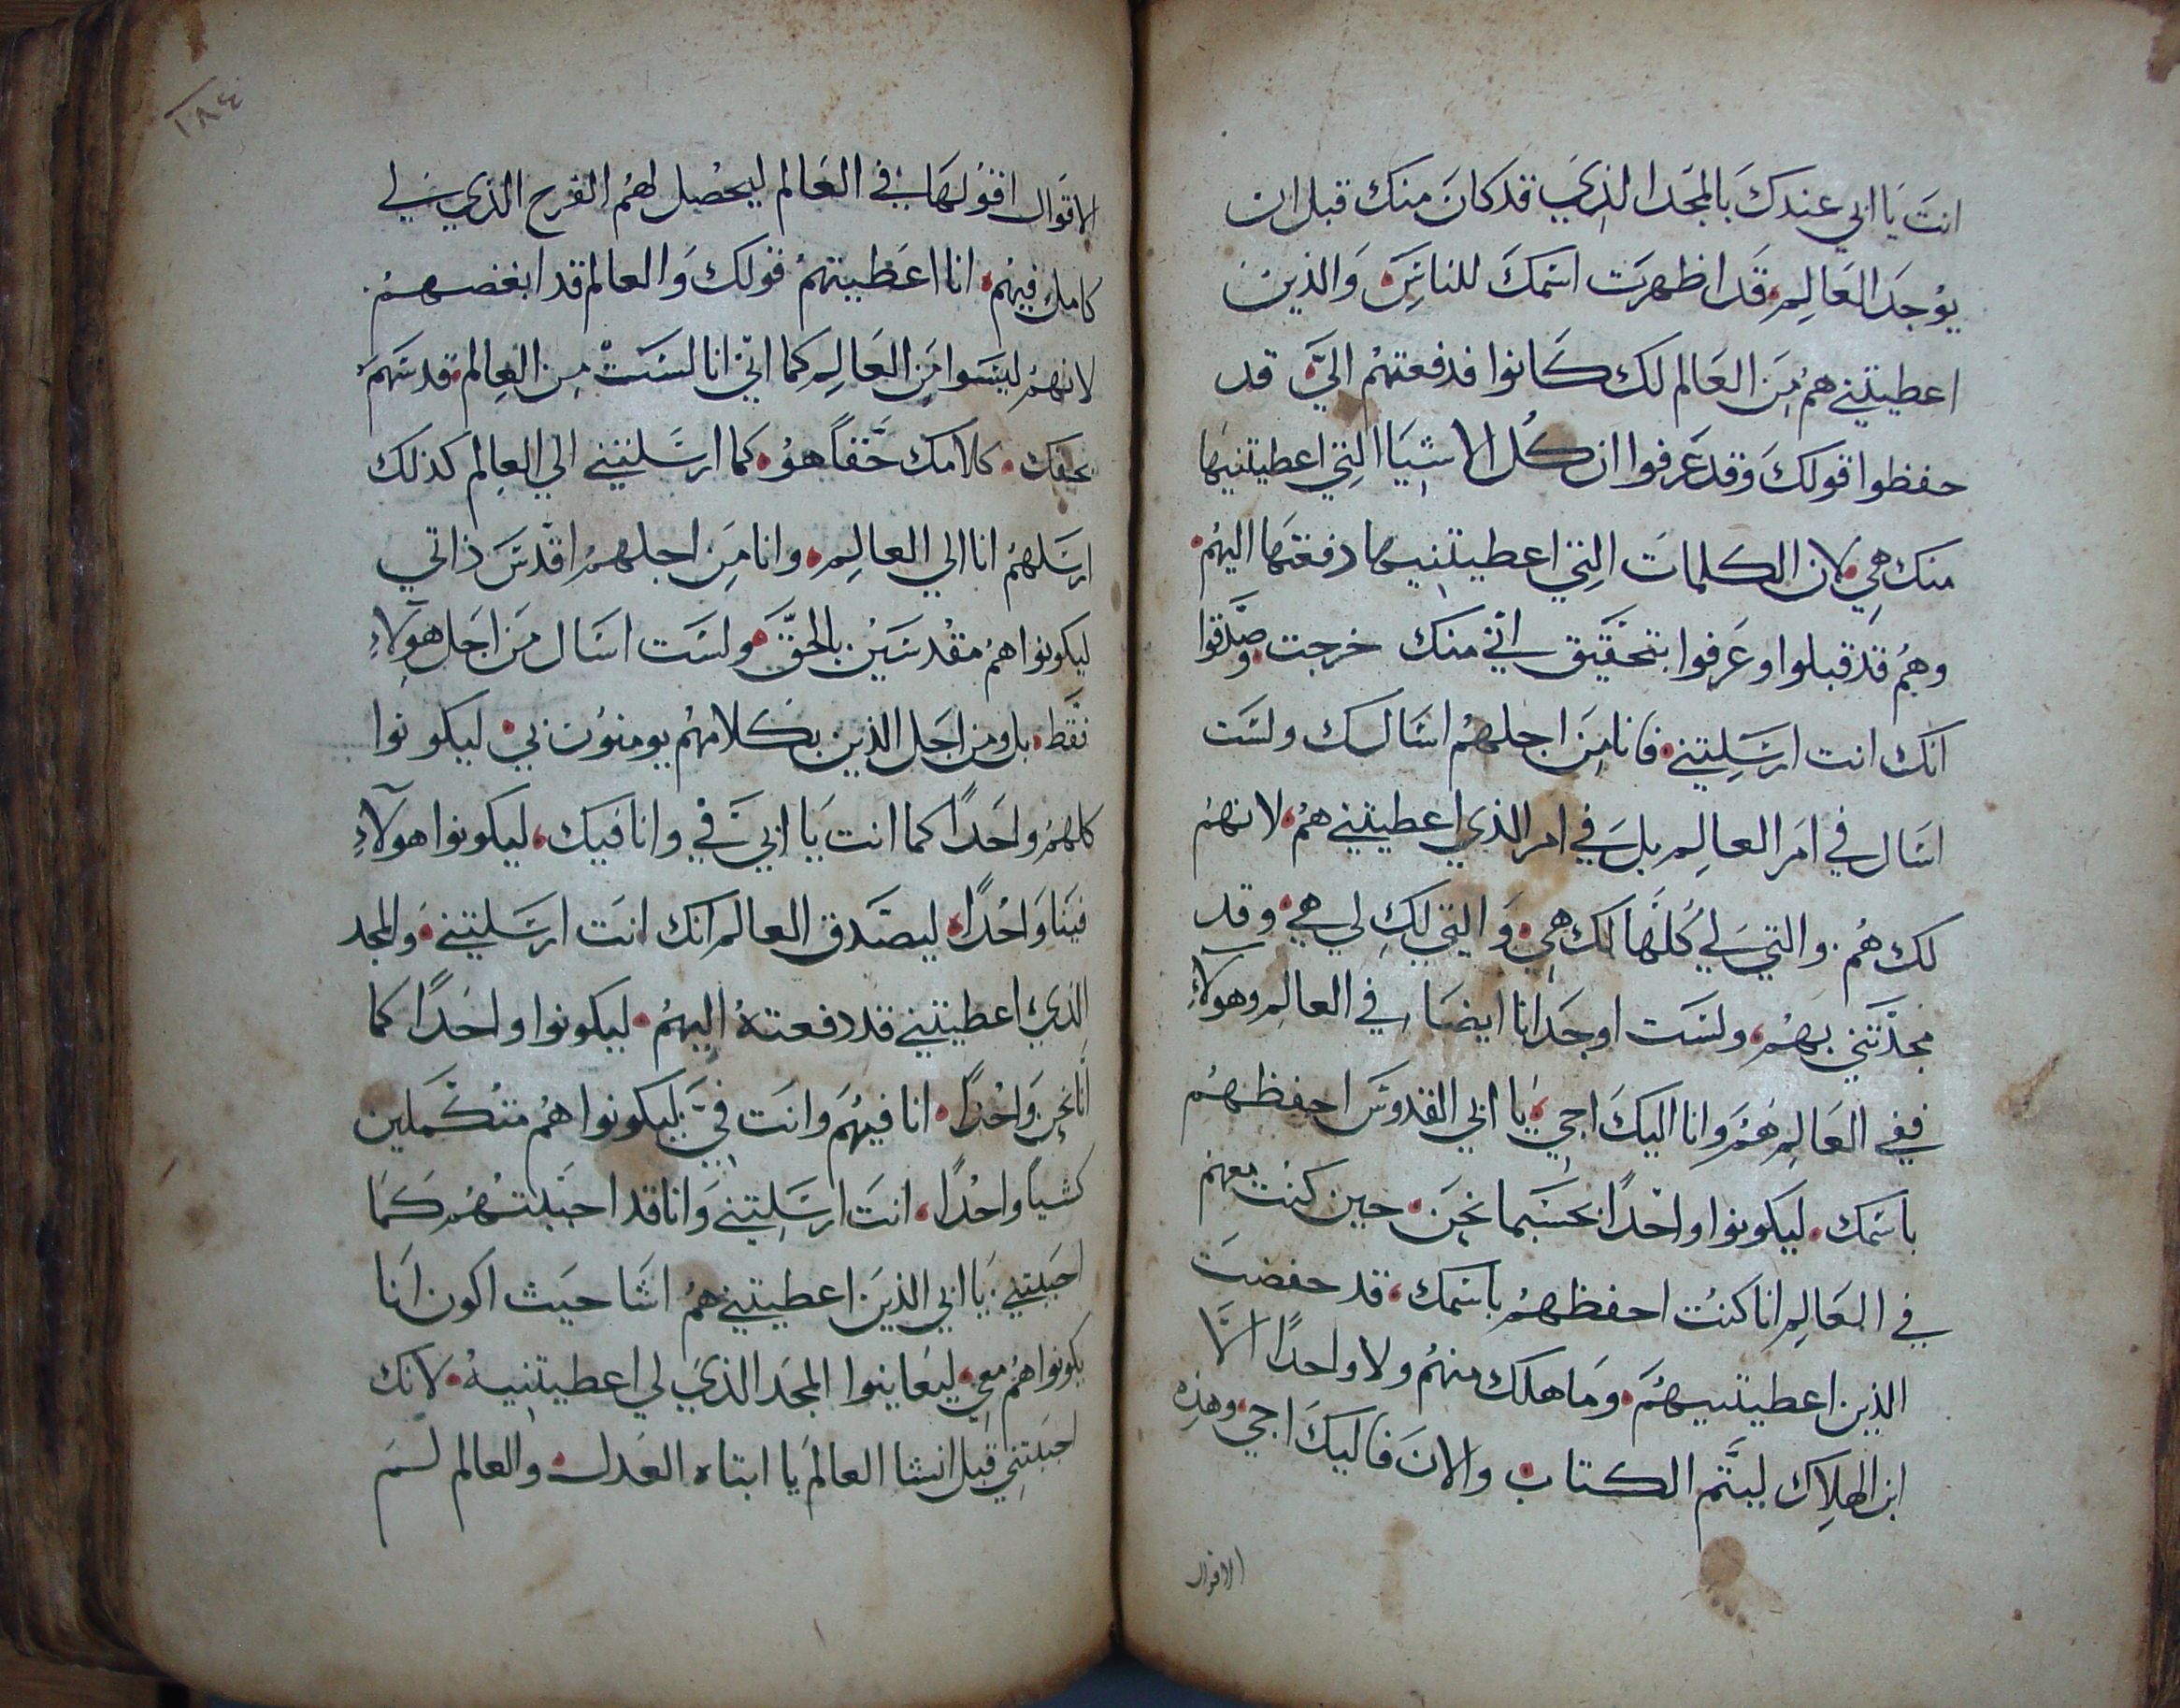 انتَ يَا ابي عندكَ بالمجَد الذِيَ قد كانَ منكَ قبل ان
يوُجدَ العَالِم قَد اظهرَت اسَمكَ للناسَِ وَالذينَ
اعطيتني همُ مِنَ العَالم لك كَانوا فدفعتهمُ اليَّ قد
حفظوا قولكَ وَقد عَرفوا ان كُل الاشيَا التِيَ اعطيتنيها
منك هِي لان الكلمات التِي اعطيتنيها دفعتَها اليهُم
وهُم قد قبلوا وعَرفوا بتحَقيَق انّي منك خرجت وصَدقوا
انك انت ارسَلِتني فانا مِنَ اجلهمُ اسَال لك ولسَت
اسَال في امَر العالِم بلَ في امر الذي اعطيتني همُ لانهمُ
لك همُ والتي لي كُلَها لك هِي وَالتِي لكِ لي هيِ وقد
مجدّتني بهمُ ولسَت اوجَد انا ايضَا في العالِم وهولآءِ
ففي العَالِم همُ وانا اليكَ اجي يا ابي القدوسَ احفظهمُ
باسَمك ليكونوا واحْدًا بحسَبما نحِنَ حين كنت معهم
في العَالِم انا كنتُ احفظهمُ باسَمك قد حفضتَ
الذين اعطيتنيهمُ ومَا هلك منهمُ ولا واحدًا الاَّ
ابن الهلِاك ليتَّم الكتاب والانَ فاليكَ اجي وهذِه
الاقوال
١٨٤
الاقوال اقوُلهَا في العَالم ليحصْل لهمُ الفرح الذي لي
كامل فيهمُ انا اعَطيتهمُ قولك وَالعالم قد ابغضهمُ
لانهمُ ليسَوا مَنِ العَالِم كما انّي انا لسَتْ مِن العِالم قدسَهمَُ
بحقك كلامك حَقاً هوُ كما ارسَلتني الي العِالم كذلك
ارسَلهمُ انا الي العالِم وانا مِنَ اجلهمُ اقدّسَ ذاتي
ليكونوا همُ مقدْسَيْن بالحقَّ ولسَت اسَال مَن اجَل هولآءِ
فقَط بل ومن اجَل الذين بكلامهمُ يومنوُن بي ليكونوا
كلهمُ واحَدًا كما انت يَا ابي فيَّ وانا فيك ليكونوا هولآءِ
فينَا وَاحْدًا ليصَدق العالم انك انتَ ارسَلتني وَالمجد
الذِي اعطيتني قد دفعتهُ اليهمُ ليكونوا واحَدًا كما
انّا نحن وَاحْدًا انا فيهمُ وانتَ فيَّ ليكونوا همُ متكْمَلين
كشياً واحْدًا انتَ ارسَلِتني وَانا قد احبَبتهمُ كمَا
احبَبتني يَا ابي الذينَ اعطيتني همُ اشَا حيَث اكون انَا
يكونوا همُ معي ليعَاينوا المجَد الذيَ لي اعطيتنيهُ لانك
احبَبتنِي قبل انشا العالمَ يَا ابتاه العَدل والعالم لسَم